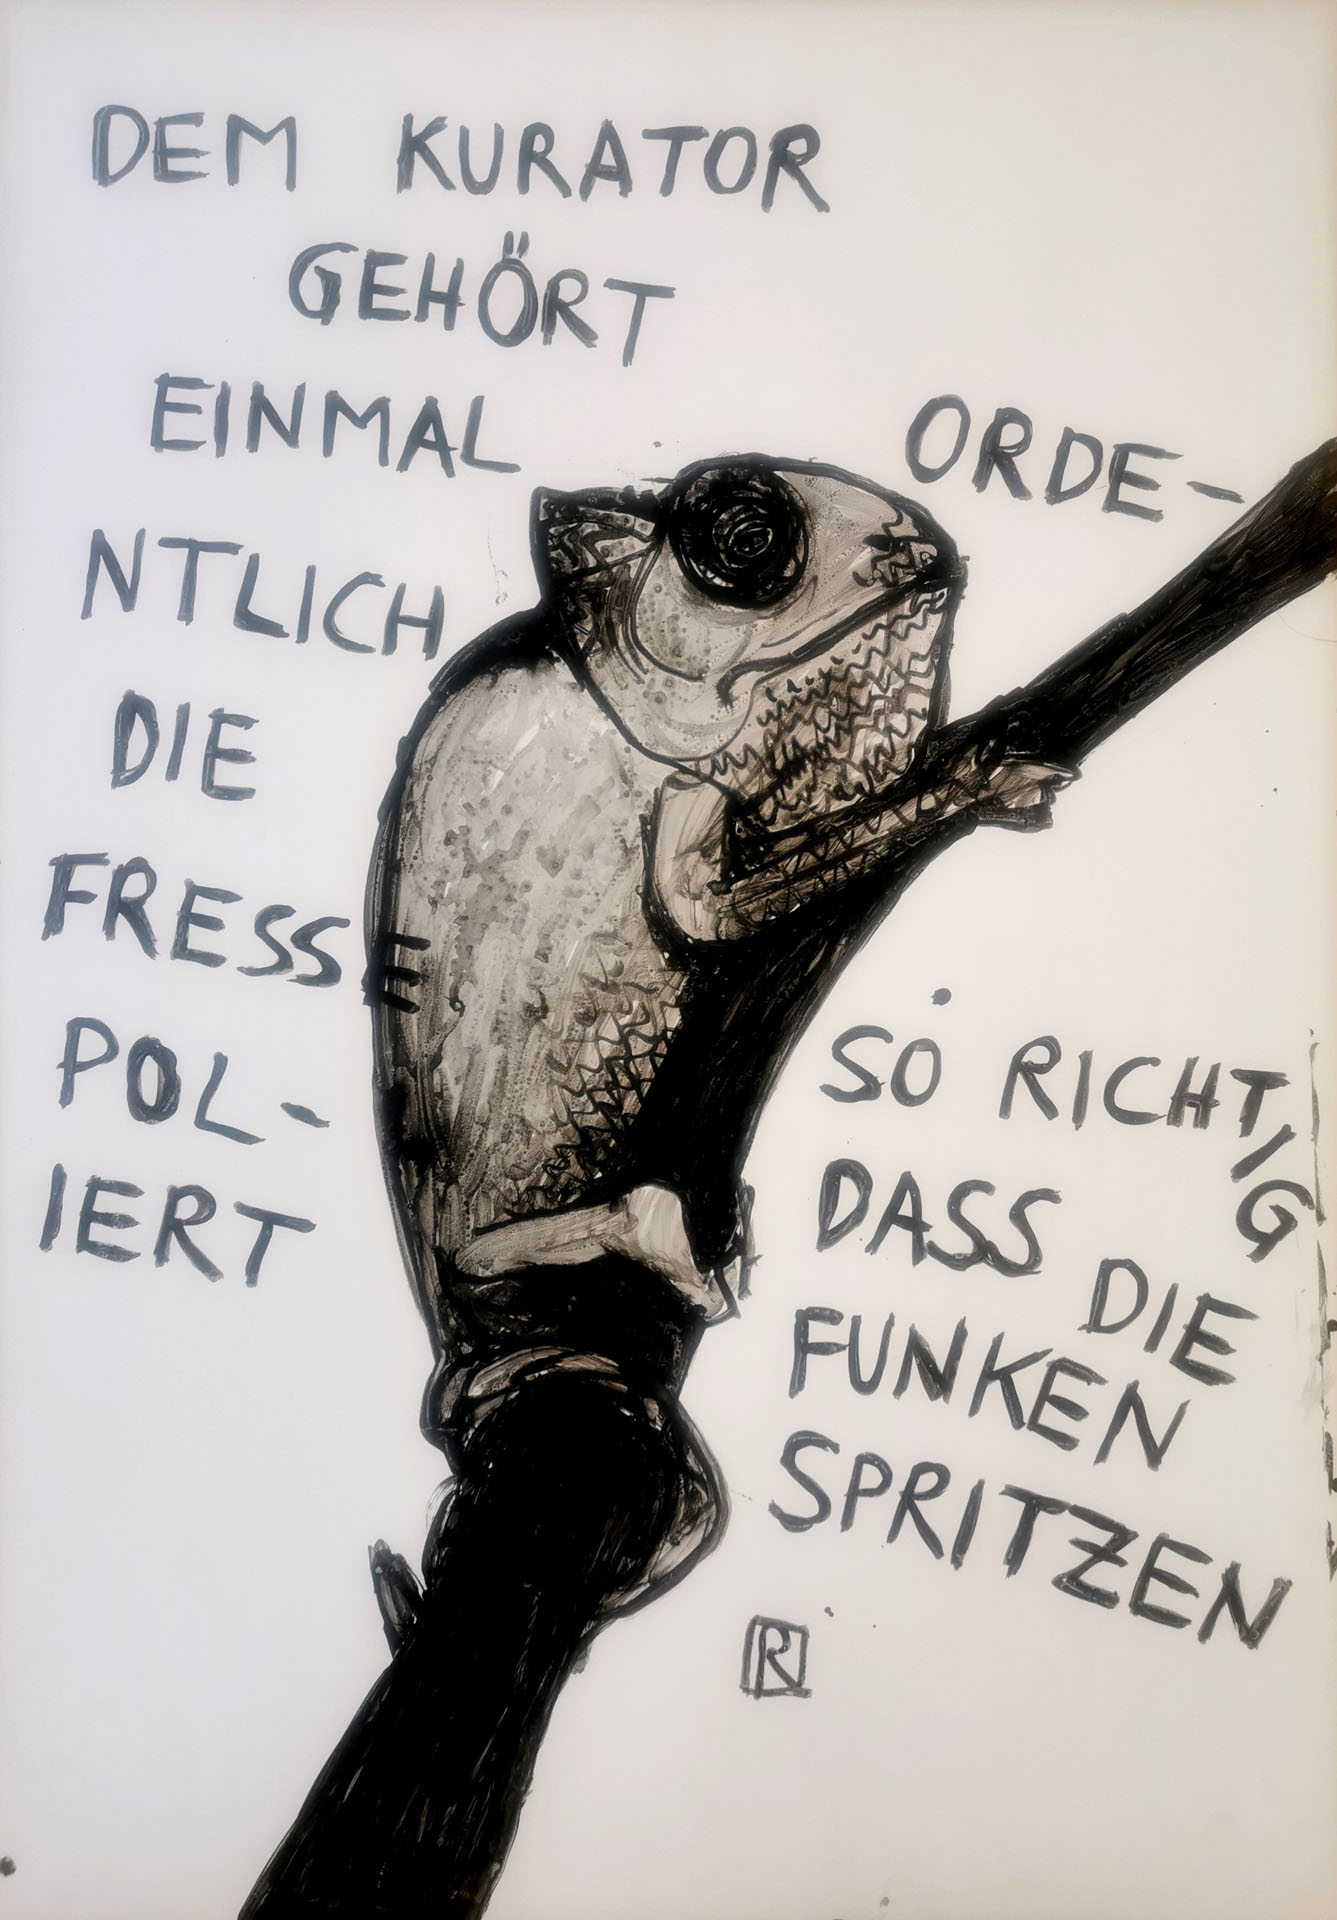 DEM KURATOR
GEHÖRT
EINMAL ORDE-
NTLICH
DIE
FRESSE
POL-
IERT
SO RICHTIG
DASS DIE
FUNKEN
SPRITZEN
R